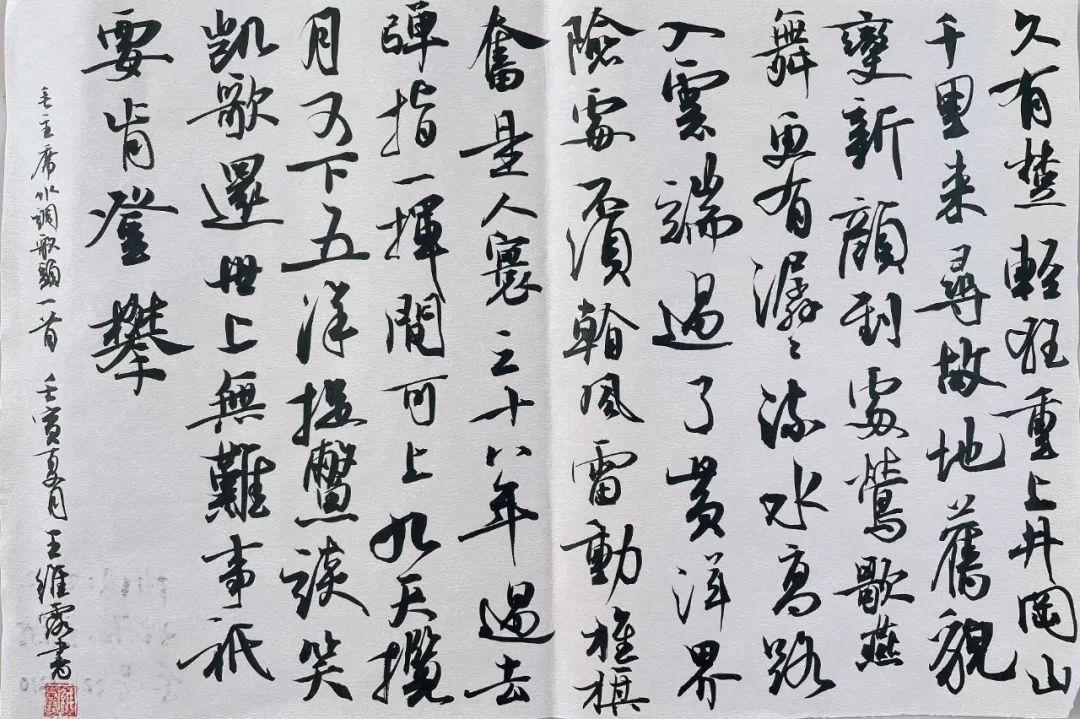 久有楚輕狂重上井岡山
千里来尋故地舊貌
變新顔到處鶯歌燕
舞更有潺〻流水高路
入雲端過了黄洋界
險處不須看風雷動旌旗
奮是人寰三十八年過去
彈指一揮間可上九天攬
月可下五洋捉鱉談笑
凱歌還世上無難事祇
要肯登攀
毛主席水調歌頭一首 壬寅夏月 王維書